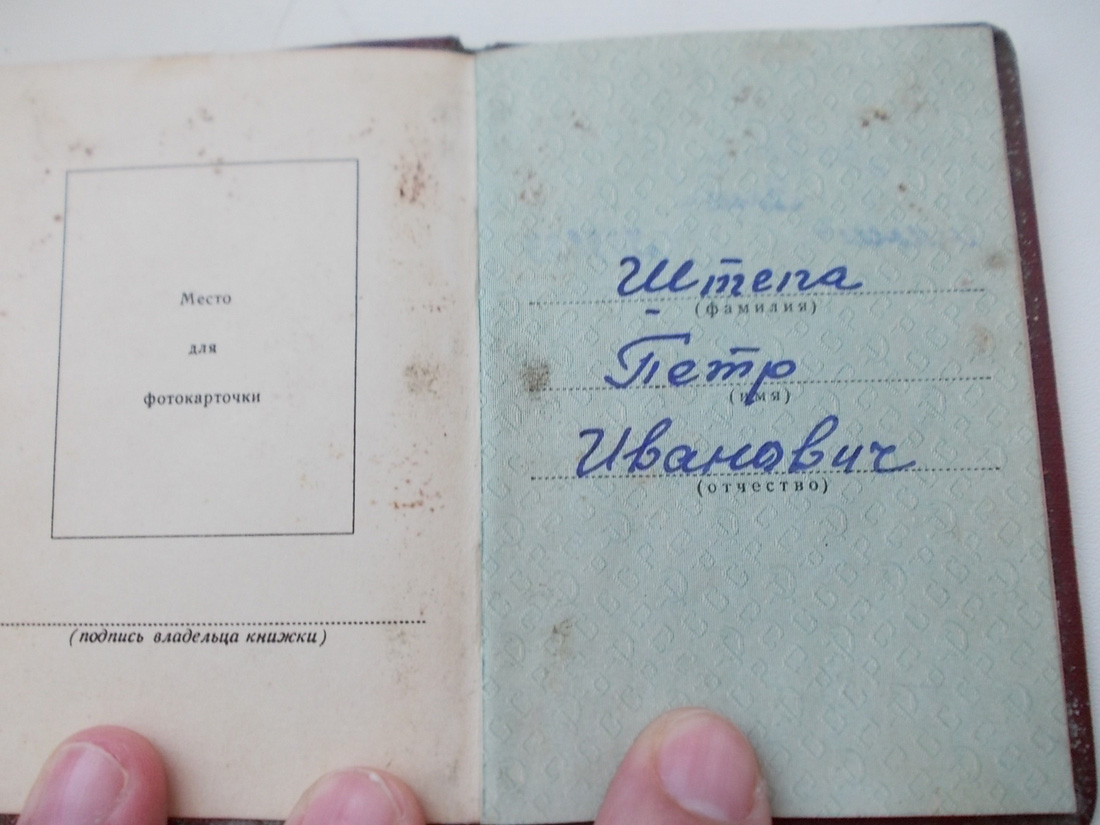 Место
для
фотокарточки
(подпись владельца книжки)
Штепа
(фамилия)
Петр
(имя)
Иванович
(отчество)